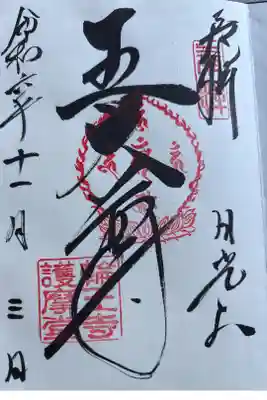 奉拝 日光山
五大尊
輪王寺
護摩堂
令和六年十一月三日